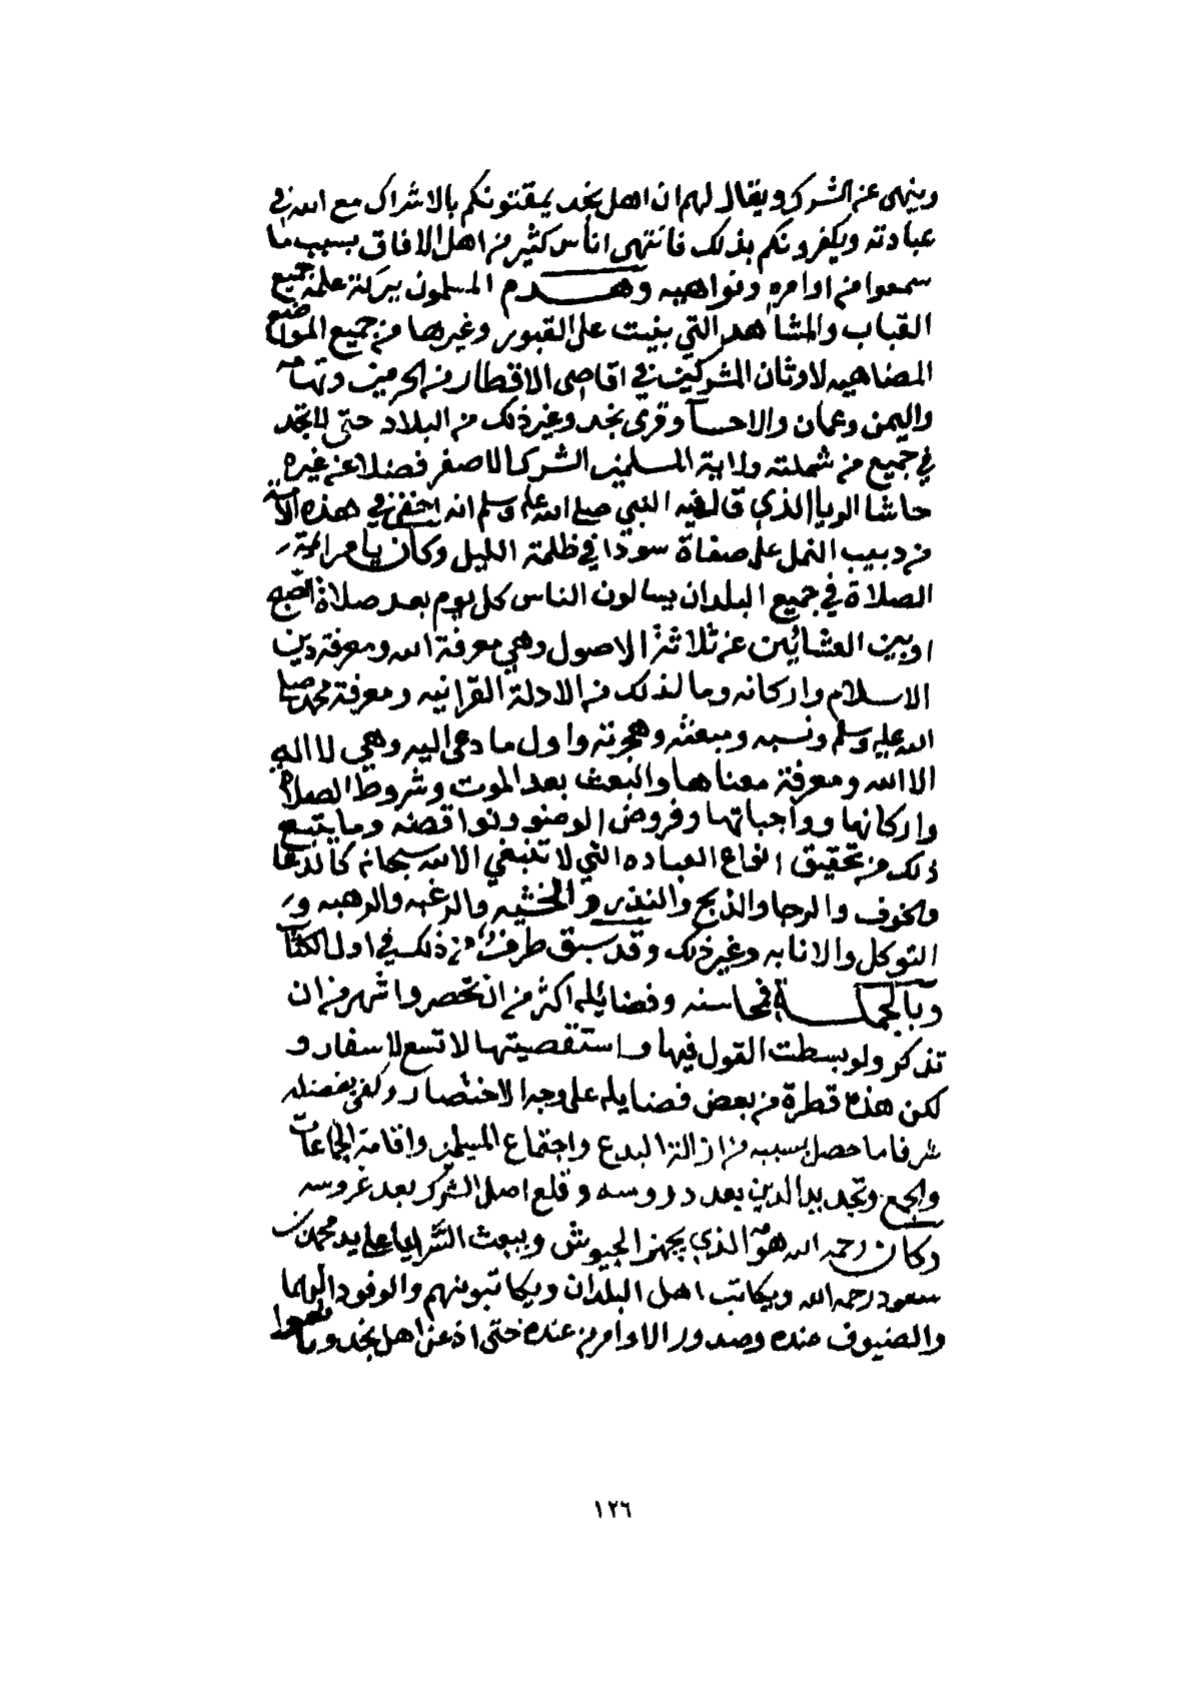 وينهى عن الشرك ويقال لهم ان اهل نجد يمقتونكم بالاشراك مع الله في
عبادته ويكفرونكم بذلك فانتهى اناس كثير من اهل الافاق بسبب ما
سمعوا من اوامره ونواهيه وهدم المسلمون ببركة علمه جميع
القباب والمشاهد التي بنيت على القبور وغيرها من جميع المواضع
المضاهيه لاوثان المشركين في اقاصى الاقطار من الحرمين وتهامه
واليمن وعمان والاحسا وقرى نجد وغير ذلك من البلاد حتى لا تجد
في جميع من شملته ولاية المسلمين الشرك الاصغر فضلا عن غيره
حاشا الريا الذي قال فيه النبي صلى الله عليه وسلم انه اخفى في هذه الامة
من دبيب النمل على صفاة سودا في ظلمة الليل وكان يامر ائمة
الصلاة في جميع البلدان يسالون الناس كل يوم بعد صلاة الصبح
او بين العشائين عن ثلاثة الاصول وهي معرفة الله ومعرفة دين
الاسلام واركانه وما لذلك من الادلة القرانيه ومعرفة محمد صلى
الله عليه وسلم ونسبه ومبعثه وهجرته واول ما دعى اليه وهي لا اله
الا الله ومعرفة معناها والبعث بعد الموت وشروط الصلاة
واركانها وواجباتها وفروض الوضو ونواقضه وما يتبع
ذلك من تحقيق انواع العباده التي لا تنبغي الا لله سبحانه كالدعا
والخوف والرجا والذبح والنذر والخشيه والرغبه والرهبه و
التوكل والانابه وغير ذلك وقد سبق طرف من ذلك في اول الكتاب
وبالجملة فمحاسنه وفضايله اكثر من ان تحصر واشهر من ان
تذكر ولو بسطت القول فيها واستقصيتها لاتسع لاسفار و
لكن هذه قطرة من بعض فضايله على وجه الاختصار وكفى بفضله
شرفا ما حصل بسببه من ازالة البدع واجتماع المسلمين واقامة الجماعات
والجمع وتجديد الدين بعد دروسه وقلع اصل الشرك بعد غروسه
وكان رحمه الله هو الذي يجهز الجيوش ويبعث السرايا على يد محمد بن
سعود رحمه الله ويكاتب اهل البلدان ويكاتبونهم والوفود اليهما
والضيوف عنده وصدور الاوامر من عنده حتى اذعن اهل نجد وتابعوا
١٢٦